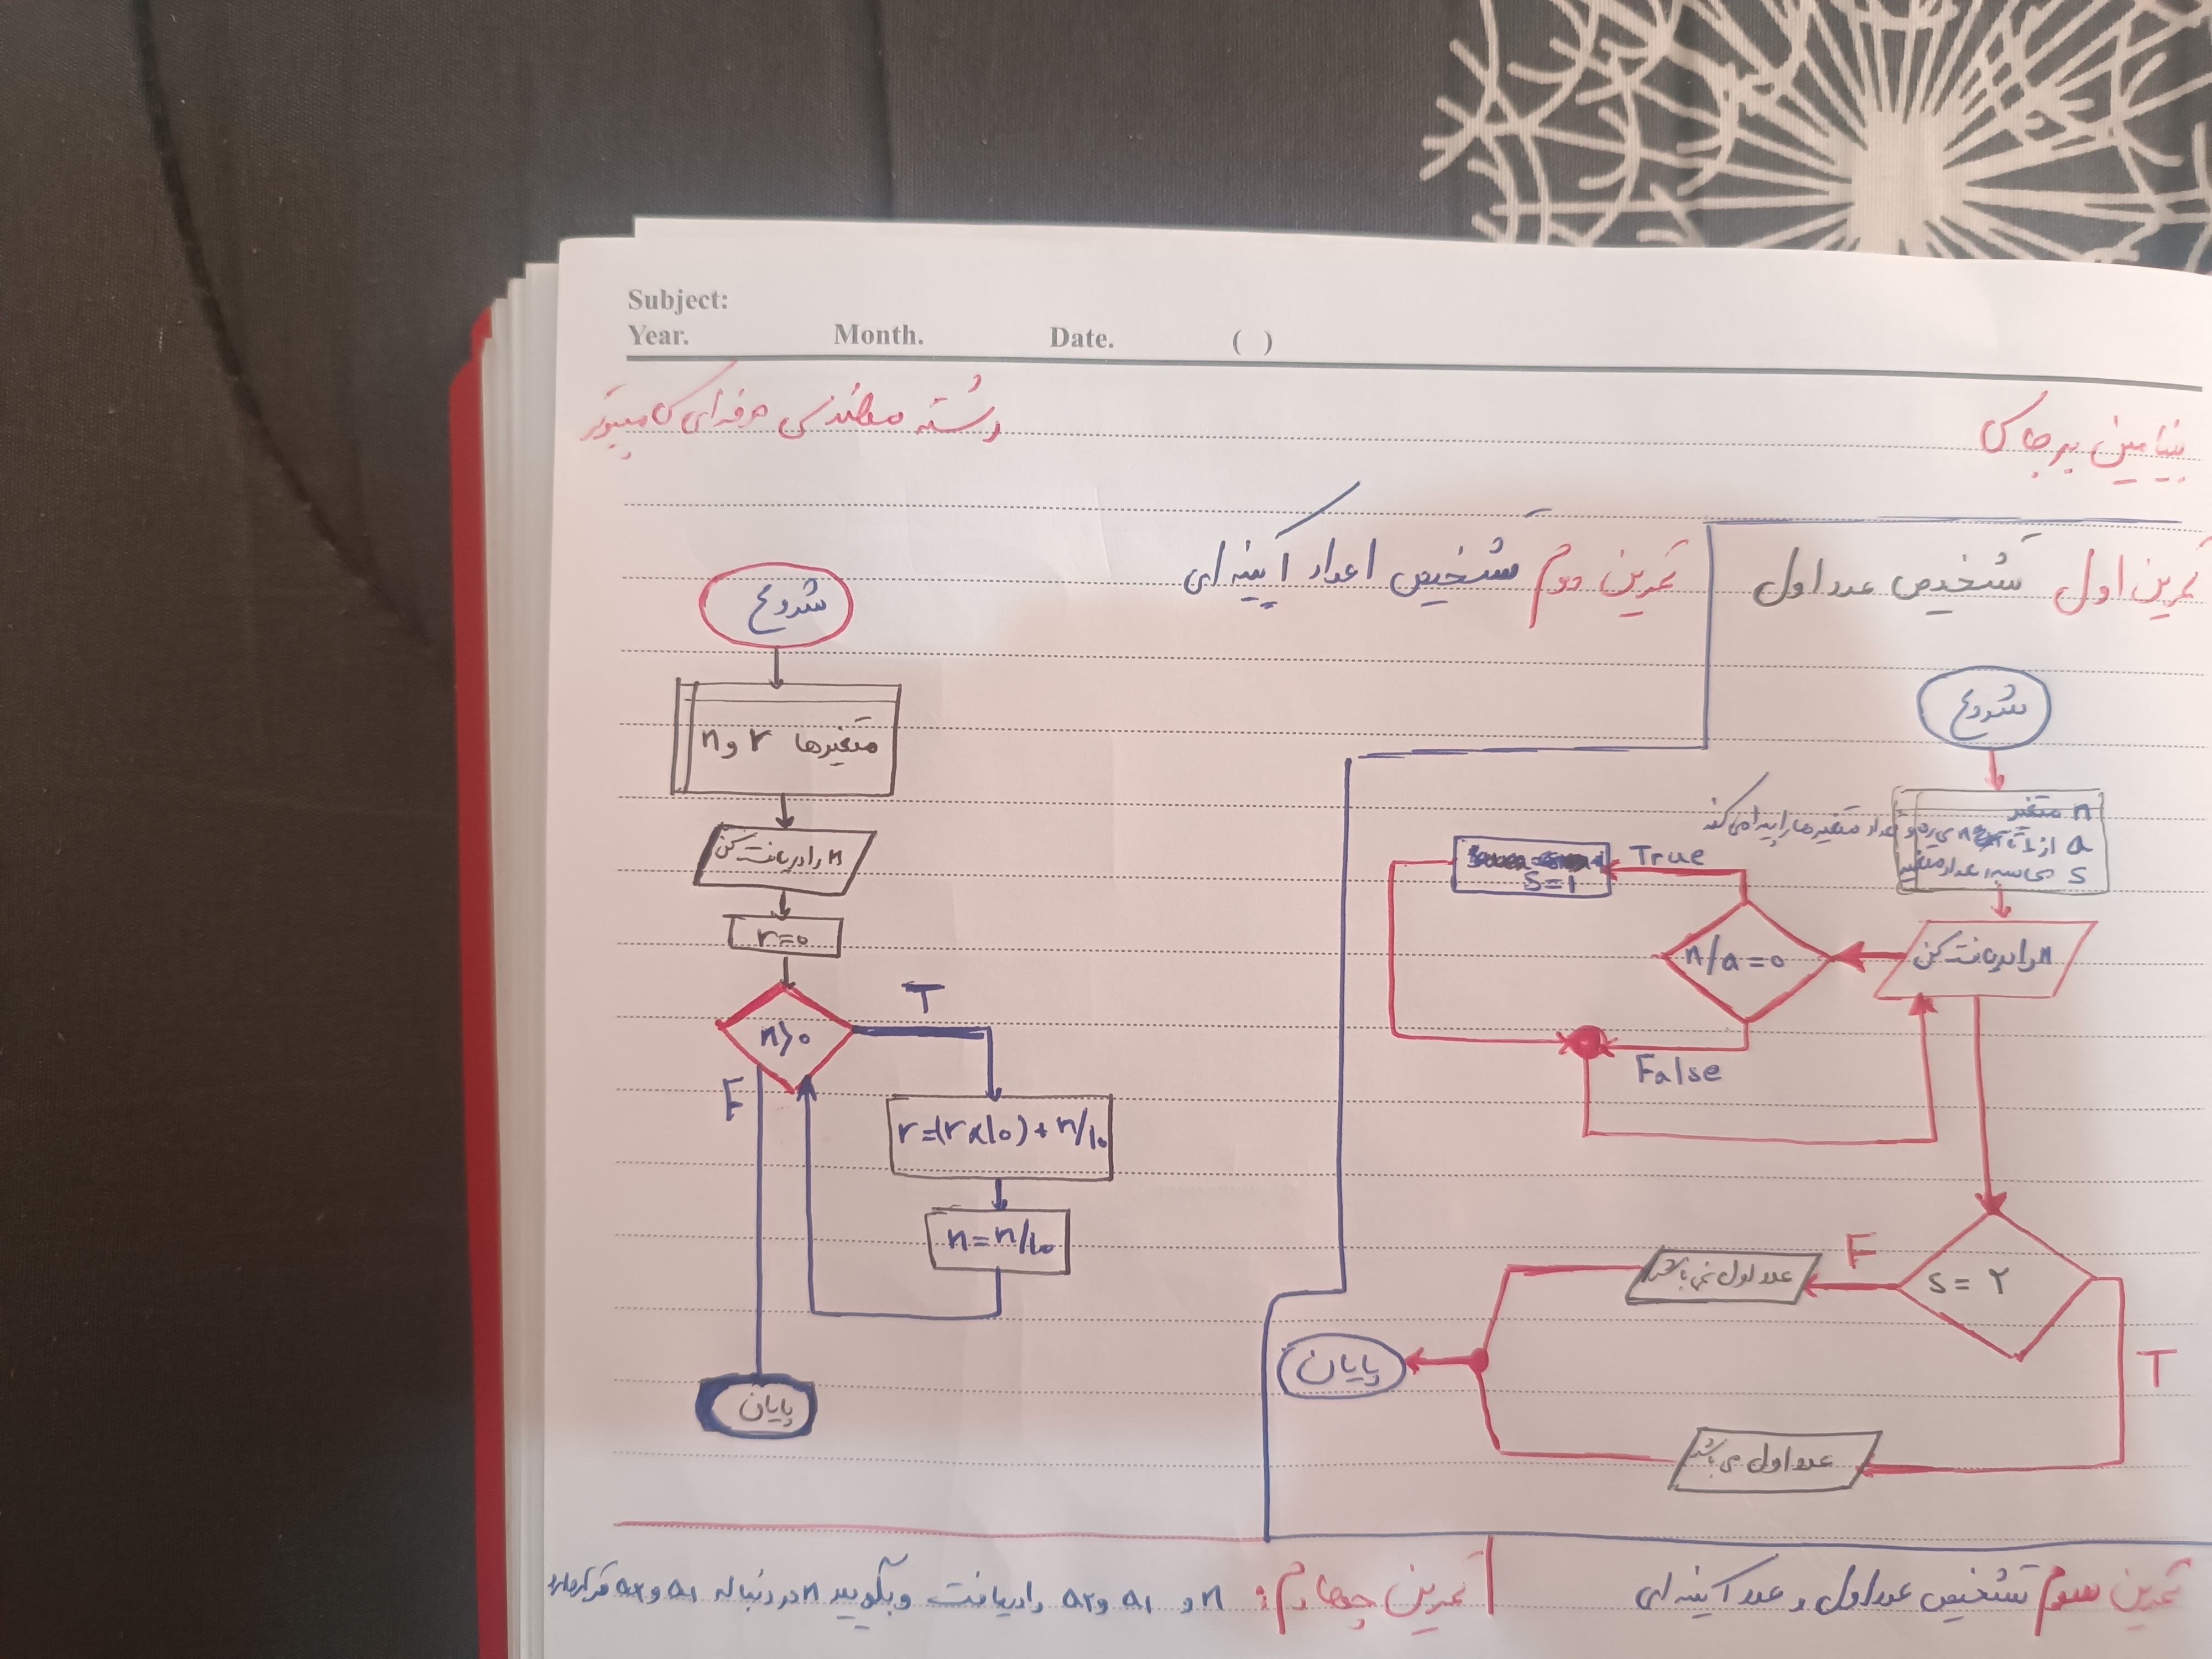 Subject:
Year. Month. Date. ( )
بنیامین برجاکی
رشته مهندسی حرفه‌ای کامپیوتر
تمرین اول تشخیص عدد اول
شروع
n متغیر
a از 1 تا n می‌ره و اعداد متغیرها را پیدا می‌کند
s محاسبه اعداد متغیر
n را دریافت کن
n/a=0
True
S=1
False
S = ۲
F
عدد اول نمی باشد
T
عدد اول می باشد
پایان
تمرین دوم تشخیص اعداد آیینه ای
شروع
متغیرها r و n
n را دریافت کن
r=0
n>0
T
r=(r×10)+n/10
n=n/10
F
پایان
تمرین سوم تشخیص عدد اول و عدد آینه ای
تمرین چهارم: n و a1 و a2 را دریافت و بگویید n در دنباله a1 و a2 قرار دارد